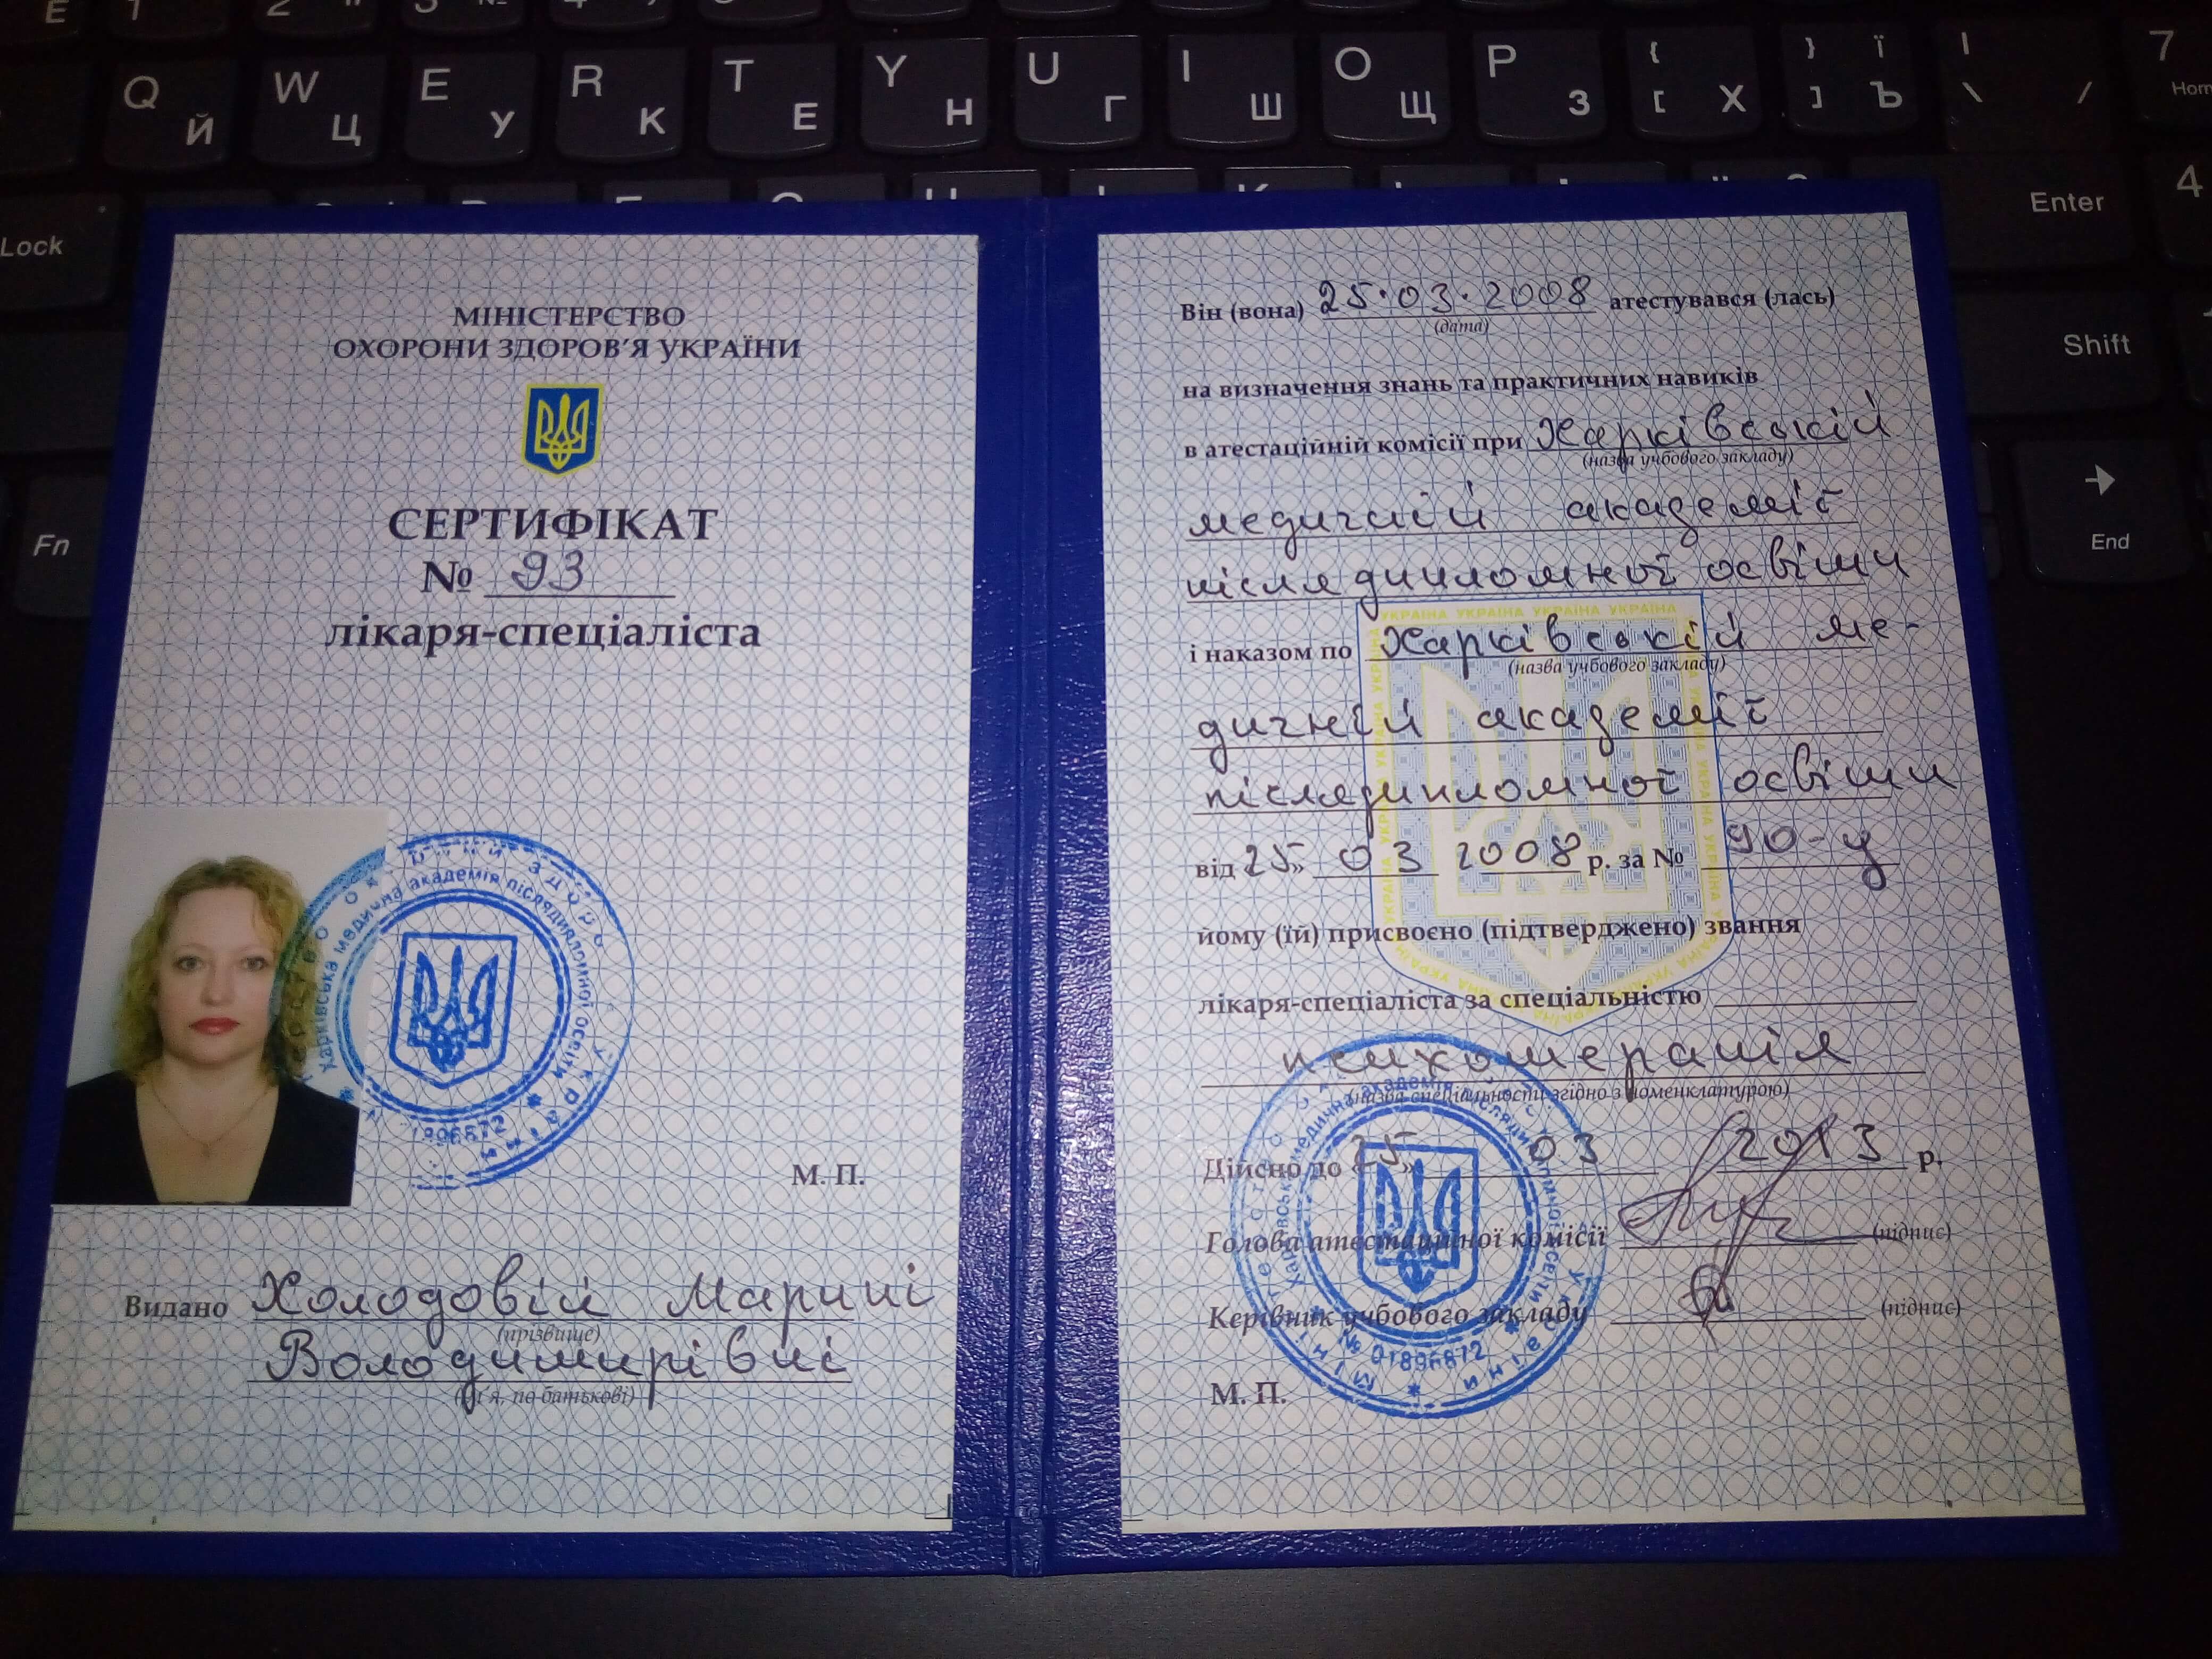 МІНІСТЕРСТВО
ОХОРОНИ ЗДОРОВ'Я УКРАЇНИ
СЕРТИФІКАТ
№ 93
лікаря-спеціаліста
Харківська медична академія післядипломної освіти
М. П.
Видано Холодовій Марині
(прізвище)
Володимирівні
(ім'я, по батькові)
Він (вона) 25.03.2008 атестувався (лась)
(дата)
на визначення знань та практичних навиків
в атестаційній комісії при Харківській
(назва учбового закладу)
медичній академії
післядипломної освіти
УКРАЇНА УКРАЇНА УКРАЇНА УКРАЇНА
і наказом по Харківській ме-
(назва учбового закладу)
дичній академії
післядипломної освіти
від 25» 03 2008 р. за № 90-у
йому (їй) присвоєно (підтверджено) звання
лікаря-спеціаліста за спеціальністю
психотерапія
(назва спеціальності згідно з номенклатурою)
Дійсно до 25» 03 2013 р.
Голова атестаційної комісії (підпис)
Керівник учбового закладу (підпис)
№ 01896872
М. П.
Q Й W Ц E У R К T Е Y Н U Г I Ш O Щ P З { [ Х } ] Ї Ъ | \ / 7
Lock
Enter 4
Shift
Fn
End